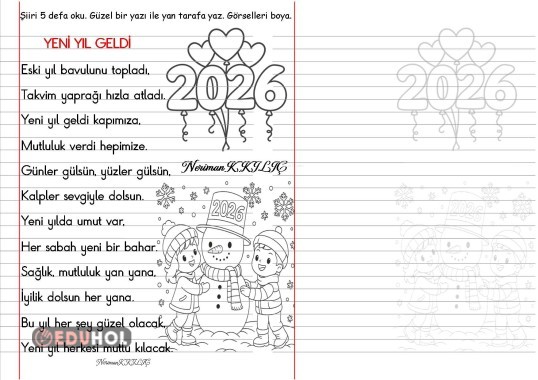 Şiiri 5 defa oku. Güzel bir yazı ile yan tarafa yaz. Görselleri boya.
YENİ YIL GELDİ
Eski yıl bavulunu topladı,
Takvim yaprağı hızla atladı.
Yeni yıl geldi kapımıza,
Mutluluk verdi hepimize.
Günler gülsün, yüzler gülsün,
Kalpler sevgiyle dolsun.
Yeni yılda umut var,
Her sabah yeni bir bahar.
Sağlık, mutluluk yan yana,
İyilik dolsun her yana.
Bu yıl her şey güzel olacak,
Yeni yıl herkesi mutlu kılacak.
NerimanKKILIÇ
2026
NerimanKKILIÇ
2026
EDUHOL
2026